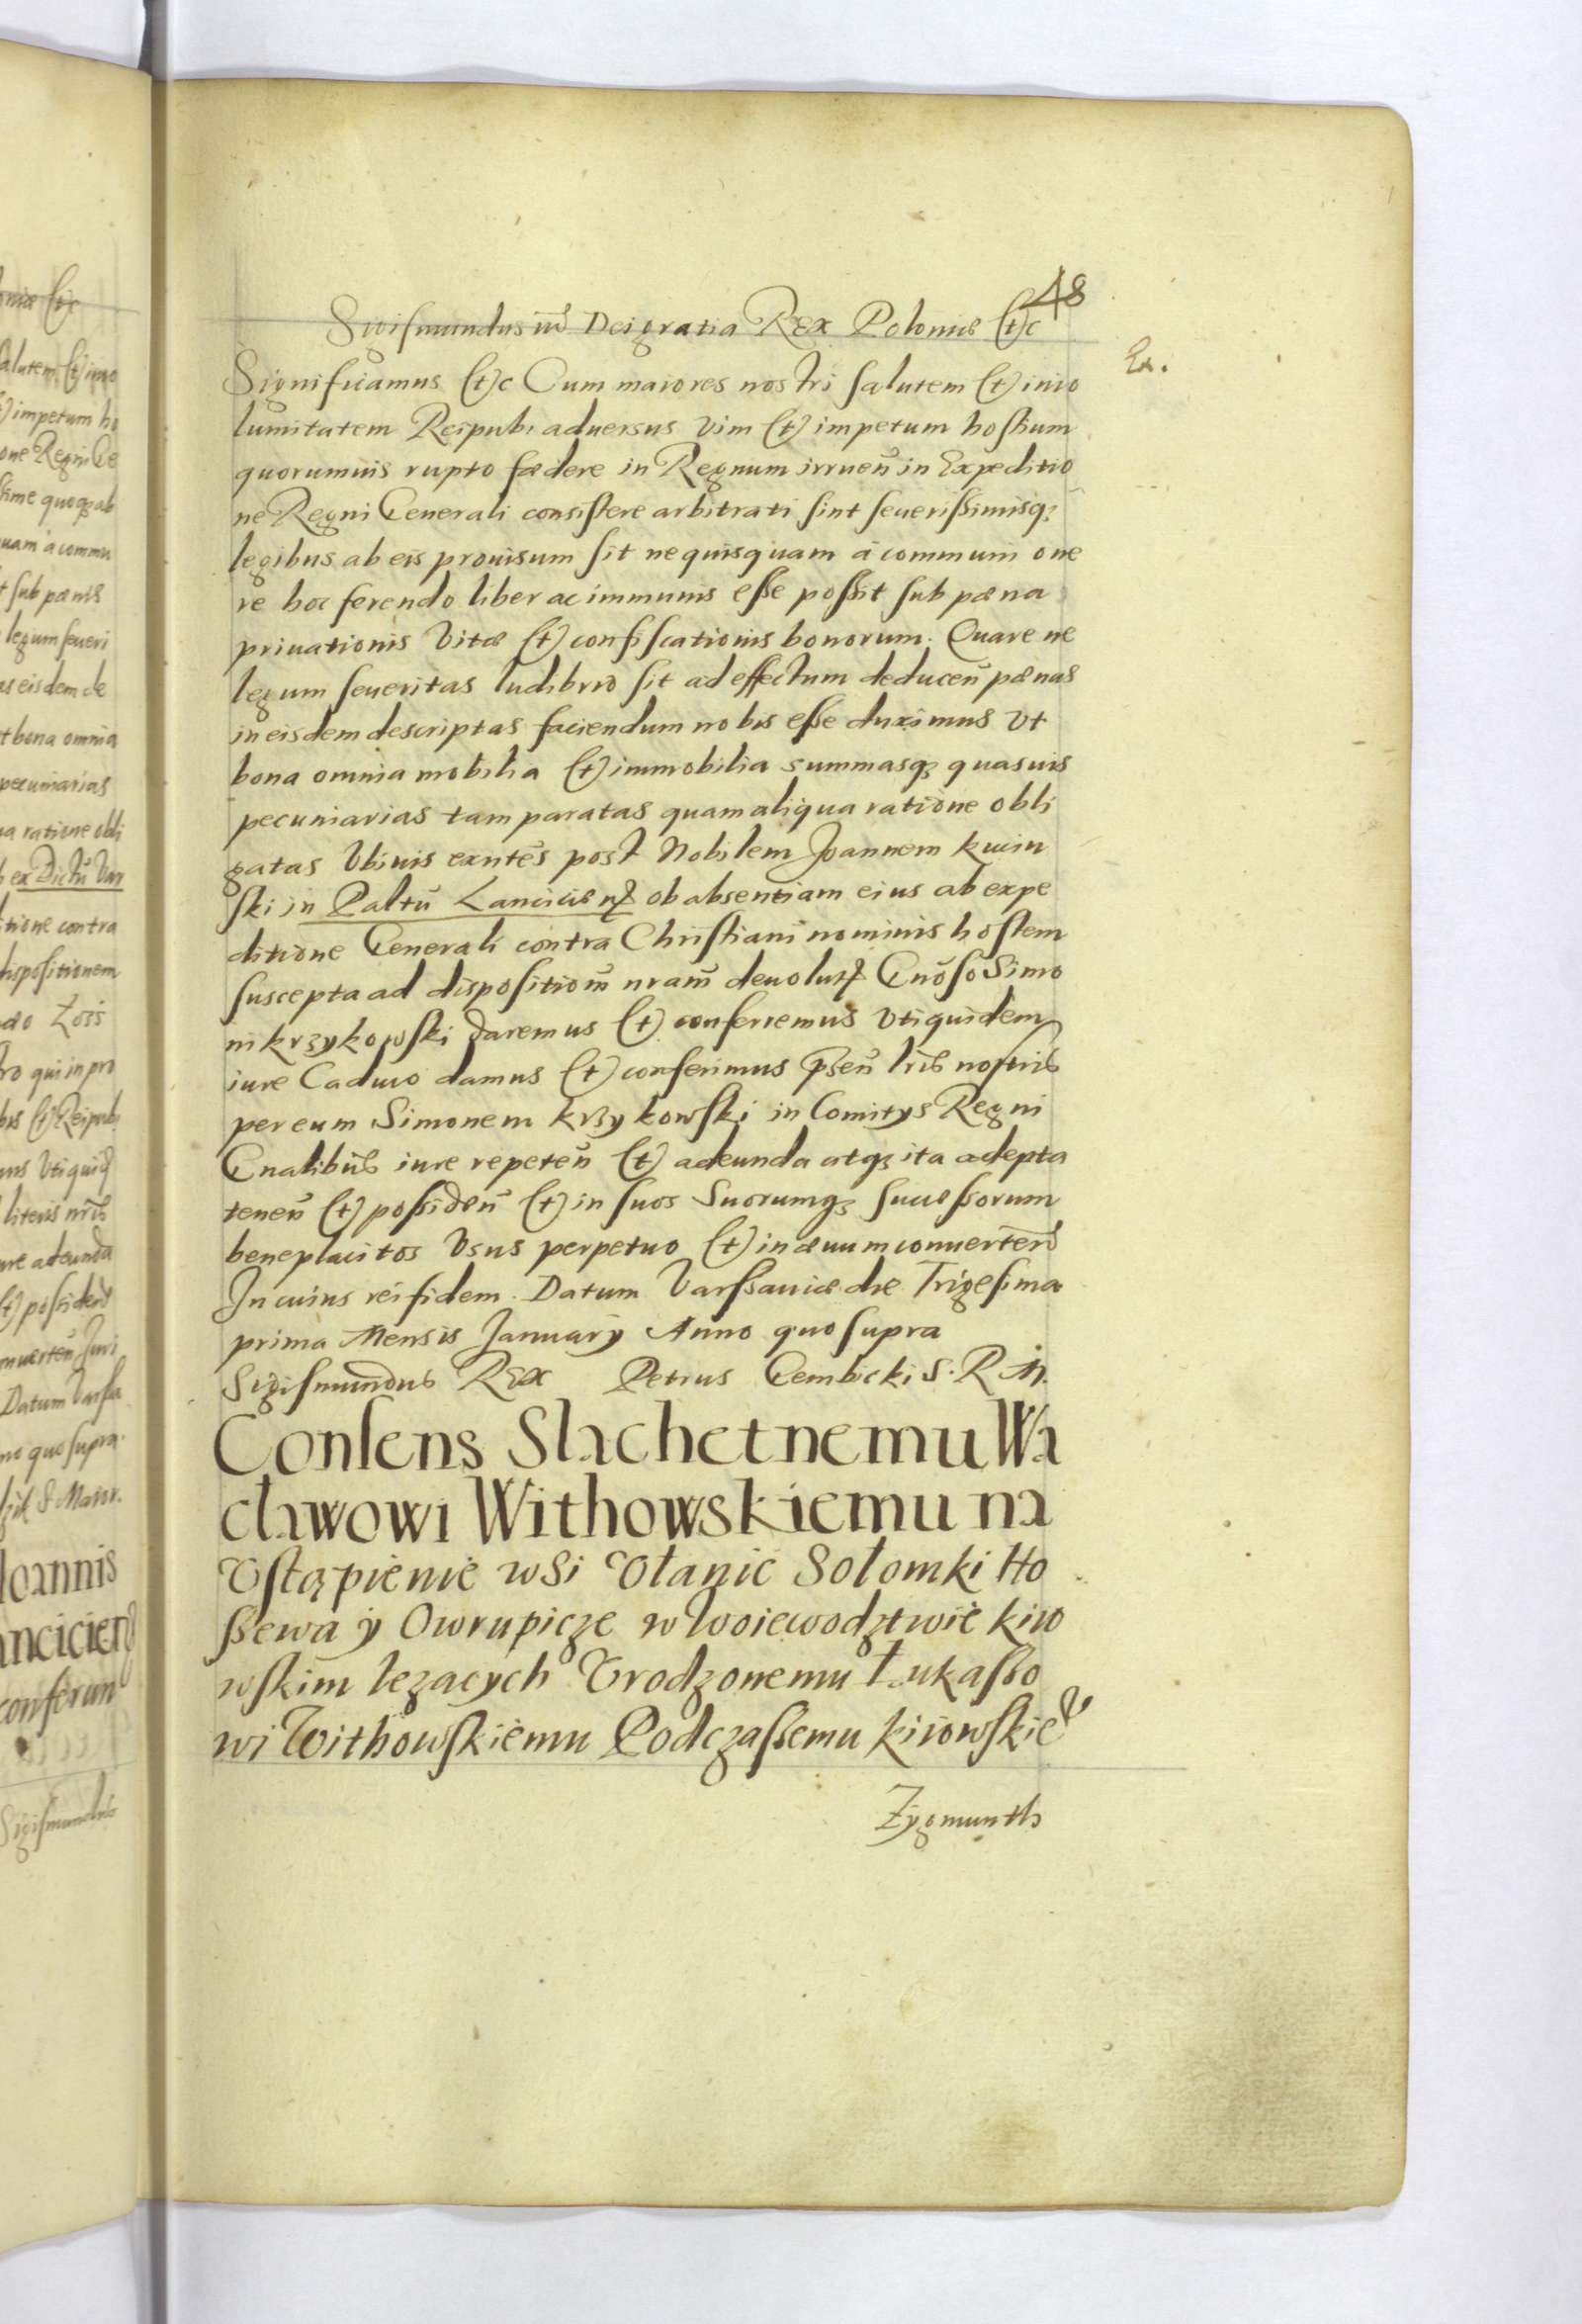 48
Sigismundus iii Dei gratia Rex Poloniæ &c
Ex.
Significamus &c Cum maiores nostri salutem & inco
lumitatem Reipub: aduersus vim & impetum hostium
quorumuis rupto fædere in Regnum irruen̄ in Expeditio
ne Regni Generali consistere arbitrati sint seuerissimisq;
legibus ab eis prouisum sit ne quisquam à communi one
re hoc ferendo liber ac immunis esse possit sub pæna
priuationis vitæ & confiscationis bonorum. Quare ne
legum seueritas ludibrio sit ad effectum deducen̄ pænas
in eisdem descriptas faciendum nobis esse duximus vt
bona omnia mobilia & immobilia summasq; quasuis
pecuniarias tam paratas quam aliqua ratione obli
gatas vbiuis exntēs post Nobilem Joannem kucin
ski in Paltū Lancicień ob absentiam eius ab expe
ditione Generali contra Christiani nominis hostem
suscepta ad dispositiōm nram̄ deuoluta Gnōso Simo
ni krzykowski daremus & conferremus vti quidem
iure Caduco damus & conferimus p̄sen̄ lrīs nostris
per eum Simonem krzykowski in Comitys Regni
Gnalibūs iure repeten̄ & adeunda atq; ita adepta
tenen̄ & possiden̄ & in suos Suorumq; successorum
beneplacitos vsus perpetuo & in æuum conuerten̄
In cuius rei fidem. Datum Varssauiæ die Trigesima
prima Mensis January Anno quo supra
Sigismundus Rex Petrus Gembicki S. R. M.
Consens Slachetnemu Wa
cławowi Withowskiemu na
Vstąpienie wsi Ołanic Sołomki Ho
ssewa ÿ Owrupicze w Woiewodztwie kiio
wskim lezacych Vrodzonemu Łukasso
wi Withowskiemu Podczassemu kiiowskie&
Zygmunth